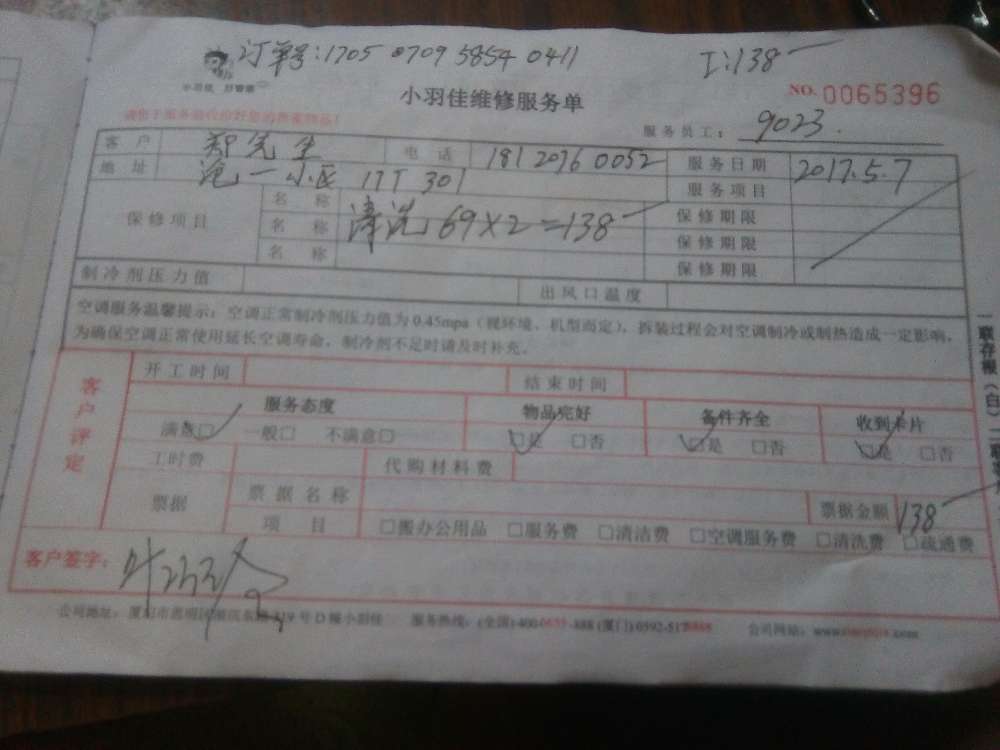 订单号:1705 0709 5854 0411 I:138
小羽佳 好管家
小羽佳维修服务单 NO. 0065396
服务员工: 9023
客户 郑先生 电话 181 2076 0052 服务日期 2017.5.7
地址 沧一小区 17T 301 服务项目
保修项目 名称 保修期限
名称 清洗 69X2=138 保修期限
名称 保修期限
制冷剂压力值 出风口温度
空调服务温馨提示:空调正常制冷剂压力值为0.45mpa(视环境、机型而定),拆装过程会对空调制冷或制热造成一定影响,
为确保空调正常使用延长空调寿命,制冷剂不足时请及时补充。
客户评定
开工时间 结束时间
服务态度 物品完好 备件齐全 收到卡片
满意□ 一般□ 不满意□ □是 □否 □是 □否 □是 □否
工时费 代购材料费
票据 票据名称 票据金额 138
项目 □搬办公用品 □服务费 □清洁费 □空调服务费 □清洗费 □疏通费
客户签字:
公司地址: 号D幢小羽佳 服务热线:(全国)400 -888 (厦门)0592-517 公司网站:www. .com
一联存根(白)二联